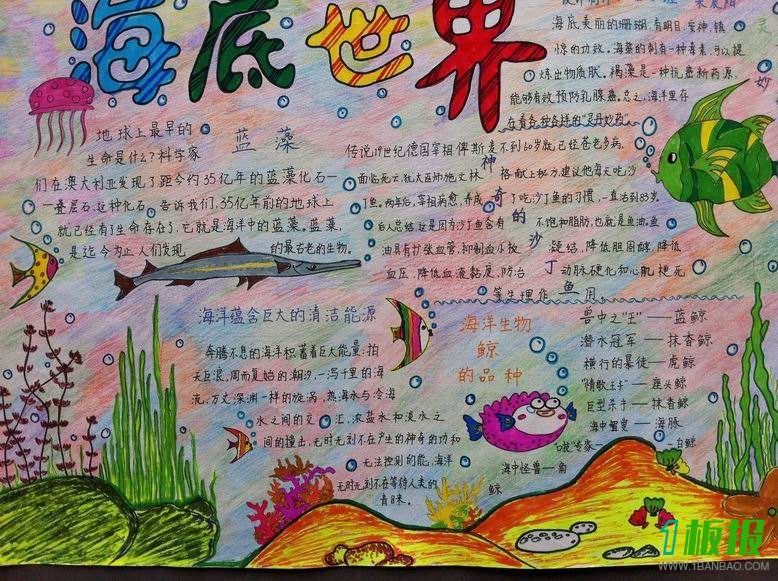 海底世界
海底美丽的珊瑚,有明目、安神、镇
惊的功效。海藻的刺有一种毒素,可以提
炼出物质肽。褐藻是一种抗癌新药源,
能够有效预防乳腺癌。总之,海洋里存
在着各种各样的“灵丹妙药”
灵
妙
地球上最早的
生命是什么?科学家
蓝藻
们在澳大利亚发现了距今约35亿年的蓝藻化石—
—叠层石。这种化石,告诉我们,35亿年前的地球上
就已经有了生命存在了,它就是海洋中的蓝藻。蓝藻,
是迄今为止人们发现的最古老的生物。
传说19世纪德国宰相俾斯麦不到60岁就已经苍老多病,
面临死亡,犹太巫师施文林格献上秘方建议他每天吃沙
丁鱼。两年后,宰相病愈,养成了吃沙丁鱼的习惯,一直活到83岁。
后人总结,这是因为沙丁鱼含有不饱和脂肪,也就是鱼油。鱼
油具有扩张血管,抑制血小板凝结,降低胆固醇,降低
血压,降低血液黏度,防治动脉硬化和心肌梗死
等生理作用。
神奇的沙丁鱼
海洋蕴含巨大的清洁能源
奔腾不息的海洋积蓄着巨大能量:拍
天巨浪,周而复始的潮汐,一泻千里的海
流,万丈深渊一样的旋涡,热海水与冷海
水之间的交汇,浓盐水和淡水之
间的撞击,无时无刻不在产生的神奇的功和
无法控制的能,海洋
无时无刻不在等待人类的
青睐。
海洋生物
鲸
的品种
兽中之“王”——蓝鲸
潜水冠军——抹香鲸
横行的暴徒——虎鲸
“情歌王子”——座头鲸
巨型杀牛——抹香鲸
海中智叟——海豚
白鲸
海中怪兽—角
鲸
1板报
WWW.1BANBAO.COM